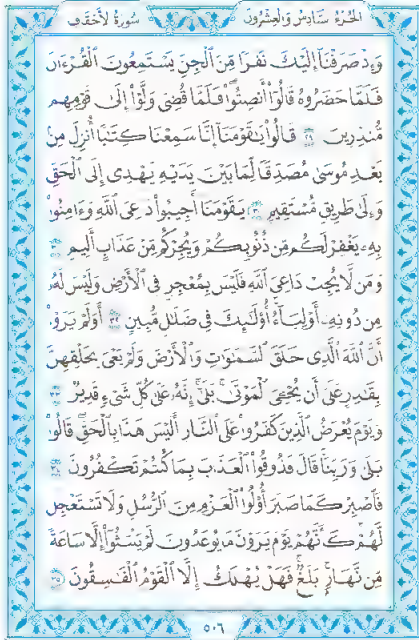 الجزء السادس والعشرون سورة الأحقاف
وَإِذْ صَرَفْنَآ إِلَيْكَ نَفَرًا مِّنَ ٱلْجِنِّ يَسْتَمِعُونَ ٱلْقُرْءَانَ
فَلَمَّا حَضَرُوهُ قَالُوٓا۟ أَنصِتُوا۟ فَلَمَّا قُضِىَ وَلَّوْا۟ إِلَىٰ قَوْمِهِم
مُّنذِرِينَ ٢٩ قَالُوا۟ يَٰقَوْمَنَآ إِنَّا سَمِعْنَا كِتَٰبًا أُنزِلَ مِنۢ
بَعْدِ مُوسَىٰ مُصَدِّقًا لِّمَا بَيْنَ يَدَيْهِ يَهْدِىٓ إِلَى ٱلْحَقِّ
وَإِلَىٰ طَرِيقٍ مُّسْتَقِيمٍ ٣٠ يَٰقَوْمَنَآ أَجِيبُوا۟ دَاعِىَ ٱللَّهِ وَءَامِنُوا۟
بِهِۦ يَغْفِرْ لَكُم مِّن ذُنُوبِكُمْ وَيُجِرْكُم مِّنْ عَذَابٍ أَلِيمٍ ٣١
وَمَن لَّا يُجِبْ دَاعِىَ ٱللَّهِ فَلَيْسَ بِمُعْجِزٍ فِى ٱلْأَرْضِ وَلَيْسَ لَهُۥ
مِن دُونِهِۦٓ أَوْلِيَآءُ ۚ أُو۟لَٰٓئِكَ فِى ضَلَٰلٍ مُّبِينٍ ٣٢ أَوَلَمْ يَرَوْا۟
أَنَّ ٱللَّهَ ٱلَّذِى خَلَقَ ٱلسَّمَٰوَٰتِ وَٱلْأَرْضَ وَلَمْ يَعْىَ بِخَلْقِهِنَّ
بِقَٰدِرٍ عَلَىٰٓ أَن يُحْۦِىَ ٱلْمَوْتَىٰ ۚ بَلَىٰٓ إِنَّهُۥ عَلَىٰ كُلِّ شَىْءٍ قَدِيرٌ ٣٣
وَيَوْمَ يُعْرَضُ ٱلَّذِينَ كَفَرُوا۟ عَلَى ٱلنَّارِ أَلَيْسَ هَٰذَا بِٱلْحَقِّ ۖ قَالُوا۟
بَلَىٰ وَرَبِّنَا ۚ قَالَ فَذُوقُوا۟ ٱلْعَذَابَ بِمَا كُنتُمْ تَكْفُرُونَ ٣٤
فَٱصْبِرْ كَمَا صَبَرَ أُو۟لُوا۟ ٱلْعَزْمِ مِنَ ٱلرُّسُلِ وَلَا تَسْتَعْجِل
لَّهُمْ ۚ كَأَنَّهُمْ يَوْمَ يَرَوْنَ مَا يُوعَدُونَ لَمْ يَلْبَثُوٓا۟ إِلَّا سَاعَةً
مِّن نَّهَارٍۭ ۚ بَلَٰغٌ ۚ فَهَلْ يُهْلَكُ إِلَّا ٱلْقَوْمُ ٱلْفَٰسِقُونَ ٣٥
٥٠٦